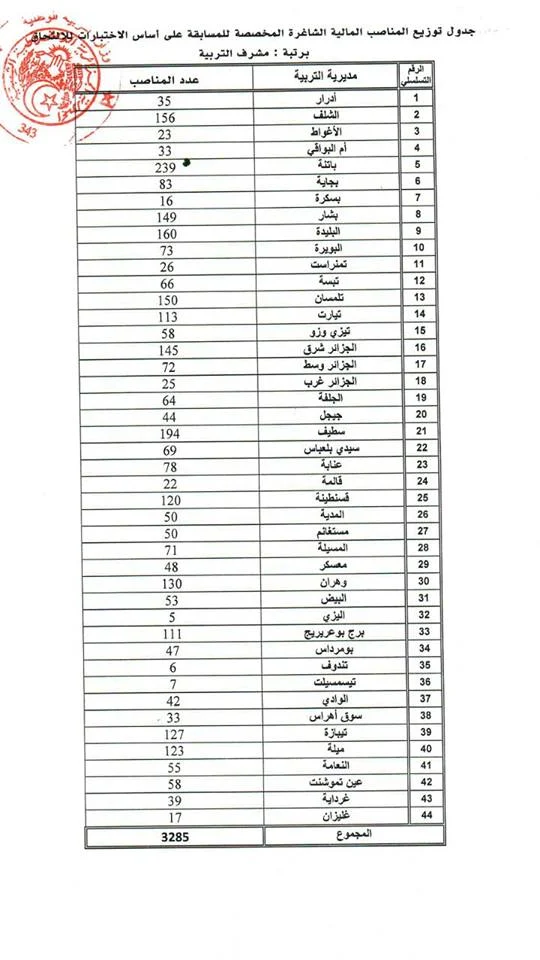 جدول توزيع المناصب المالية الشاغرة المخصصة للمسابقة على أساس الاختبارات للالتحاق
برتبة : مشرف التربية
الرقم التسلسلي مديرية التربية عدد المناصب
1 أدرار 35
2 الشلف 156
3 الأغواط 23
4 أم البواقي 33
5 باتنة 239
6 بجاية 83
7 بسكرة 16
8 بشار 149
9 البليدة 160
10 البويرة 73
11 تمنراست 26
12 تبسة 66
13 تلمسان 150
14 تيارت 113
15 تيزي وزو 58
16 الجزائر شرق 145
17 الجزائر وسط 72
18 الجزائر غرب 25
19 الجلفة 64
20 جيجل 44
21 سطيف 194
22 سيدي بلعباس 69
23 عنابة 78
24 قالمة 22
25 قسنطينة 120
26 المدية 50
27 مستغانم 50
28 المسيلة 71
29 معسكر 48
30 وهران 130
31 البيض 53
32 اليزي 5
33 برج بوعريريج 111
34 بومرداس 47
35 تندوف 6
36 تيسمسيلت 7
37 الوادي 42
38 سوق أهراس 33
39 تيبازة 127
40 ميلة 123
41 النعامة 55
42 عين تموشنت 58
43 غرداية 39
44 غليزان 17
المجموع 3285
343